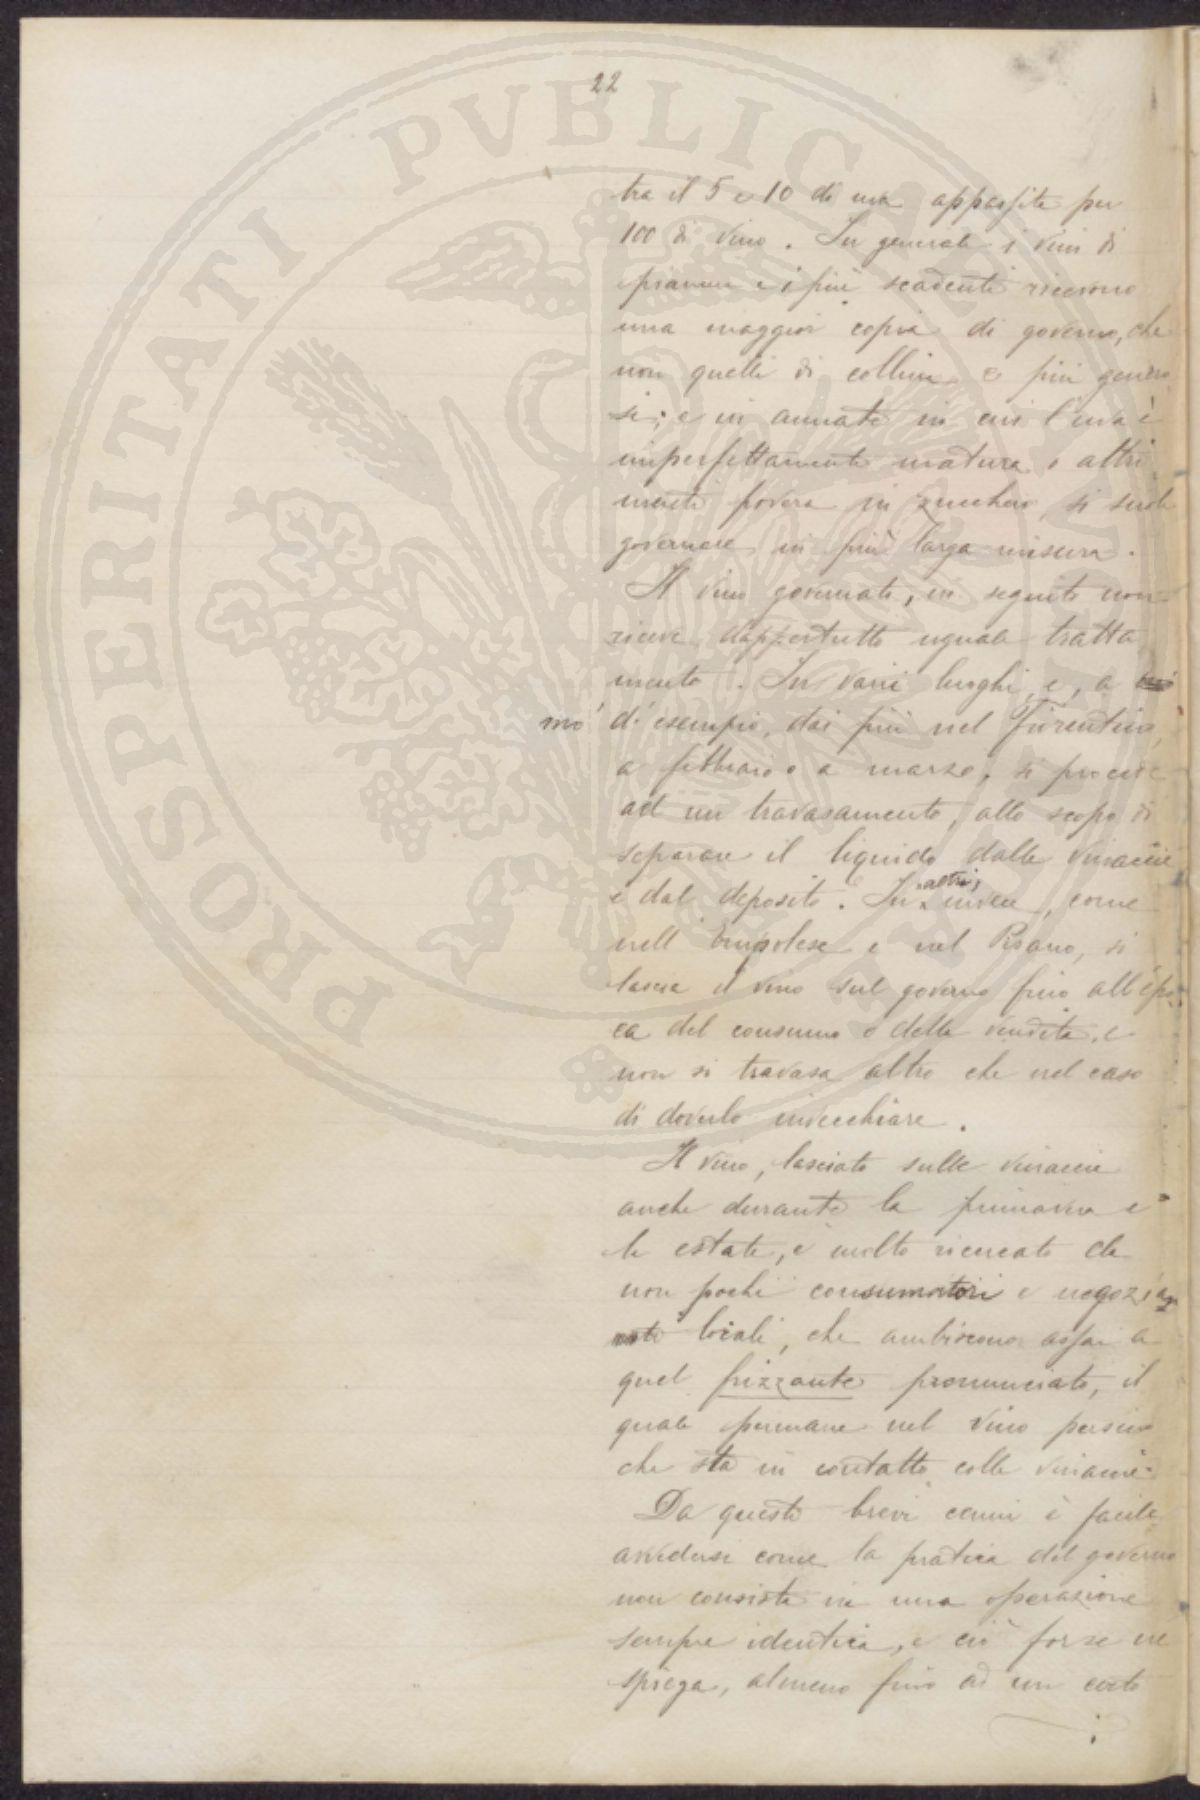 22
tra il 5 e 10 di uva appassita per
100 di vino. In generale i vini di
pianura e i più scadenti ricevono
una maggior copia di governo, che
non quelli di collina e più genero
si; e in annate in cui l'uva è
imperfettamente matura o altri
menti povera in zucchero, si suole
governare in più larga misura.
Il vino governato, in seguito non
riceve dappertutto uguale tratta
mento. In varii luoghi e, a
mo' d'esempio, dai più nel Fiorentino,
a febbraio o a marzo, si procede
ad un travasamento, allo scopo di
separare il liquido dalle vinaccie
e dal deposito. In altri, invece, come
nell'Empolese e nel Pisano, si
lascia il vino sul governo fino all'epo
ca del consumo o della vendita, e
non si travasa altro che nel caso
di doverlo invecchiare.
Il vino, lasciato sulle vinaccie
anche durante la primavera e
la estate, è molto ricercato da
non pochi consumatori e negozian
ti locali, che ambiscono assai a
quel frizzante pronunciato, il
quale permane nel vino persino
che sta in contatto colle vinaccie.
Da questi brevi cenni è facile
avvedersi come la pratica del governo
non consiste in una operazione
sempre identica, e ciò forse ne
spiega, almeno fino ad un certo
PROSPERITATI PVBLICAE